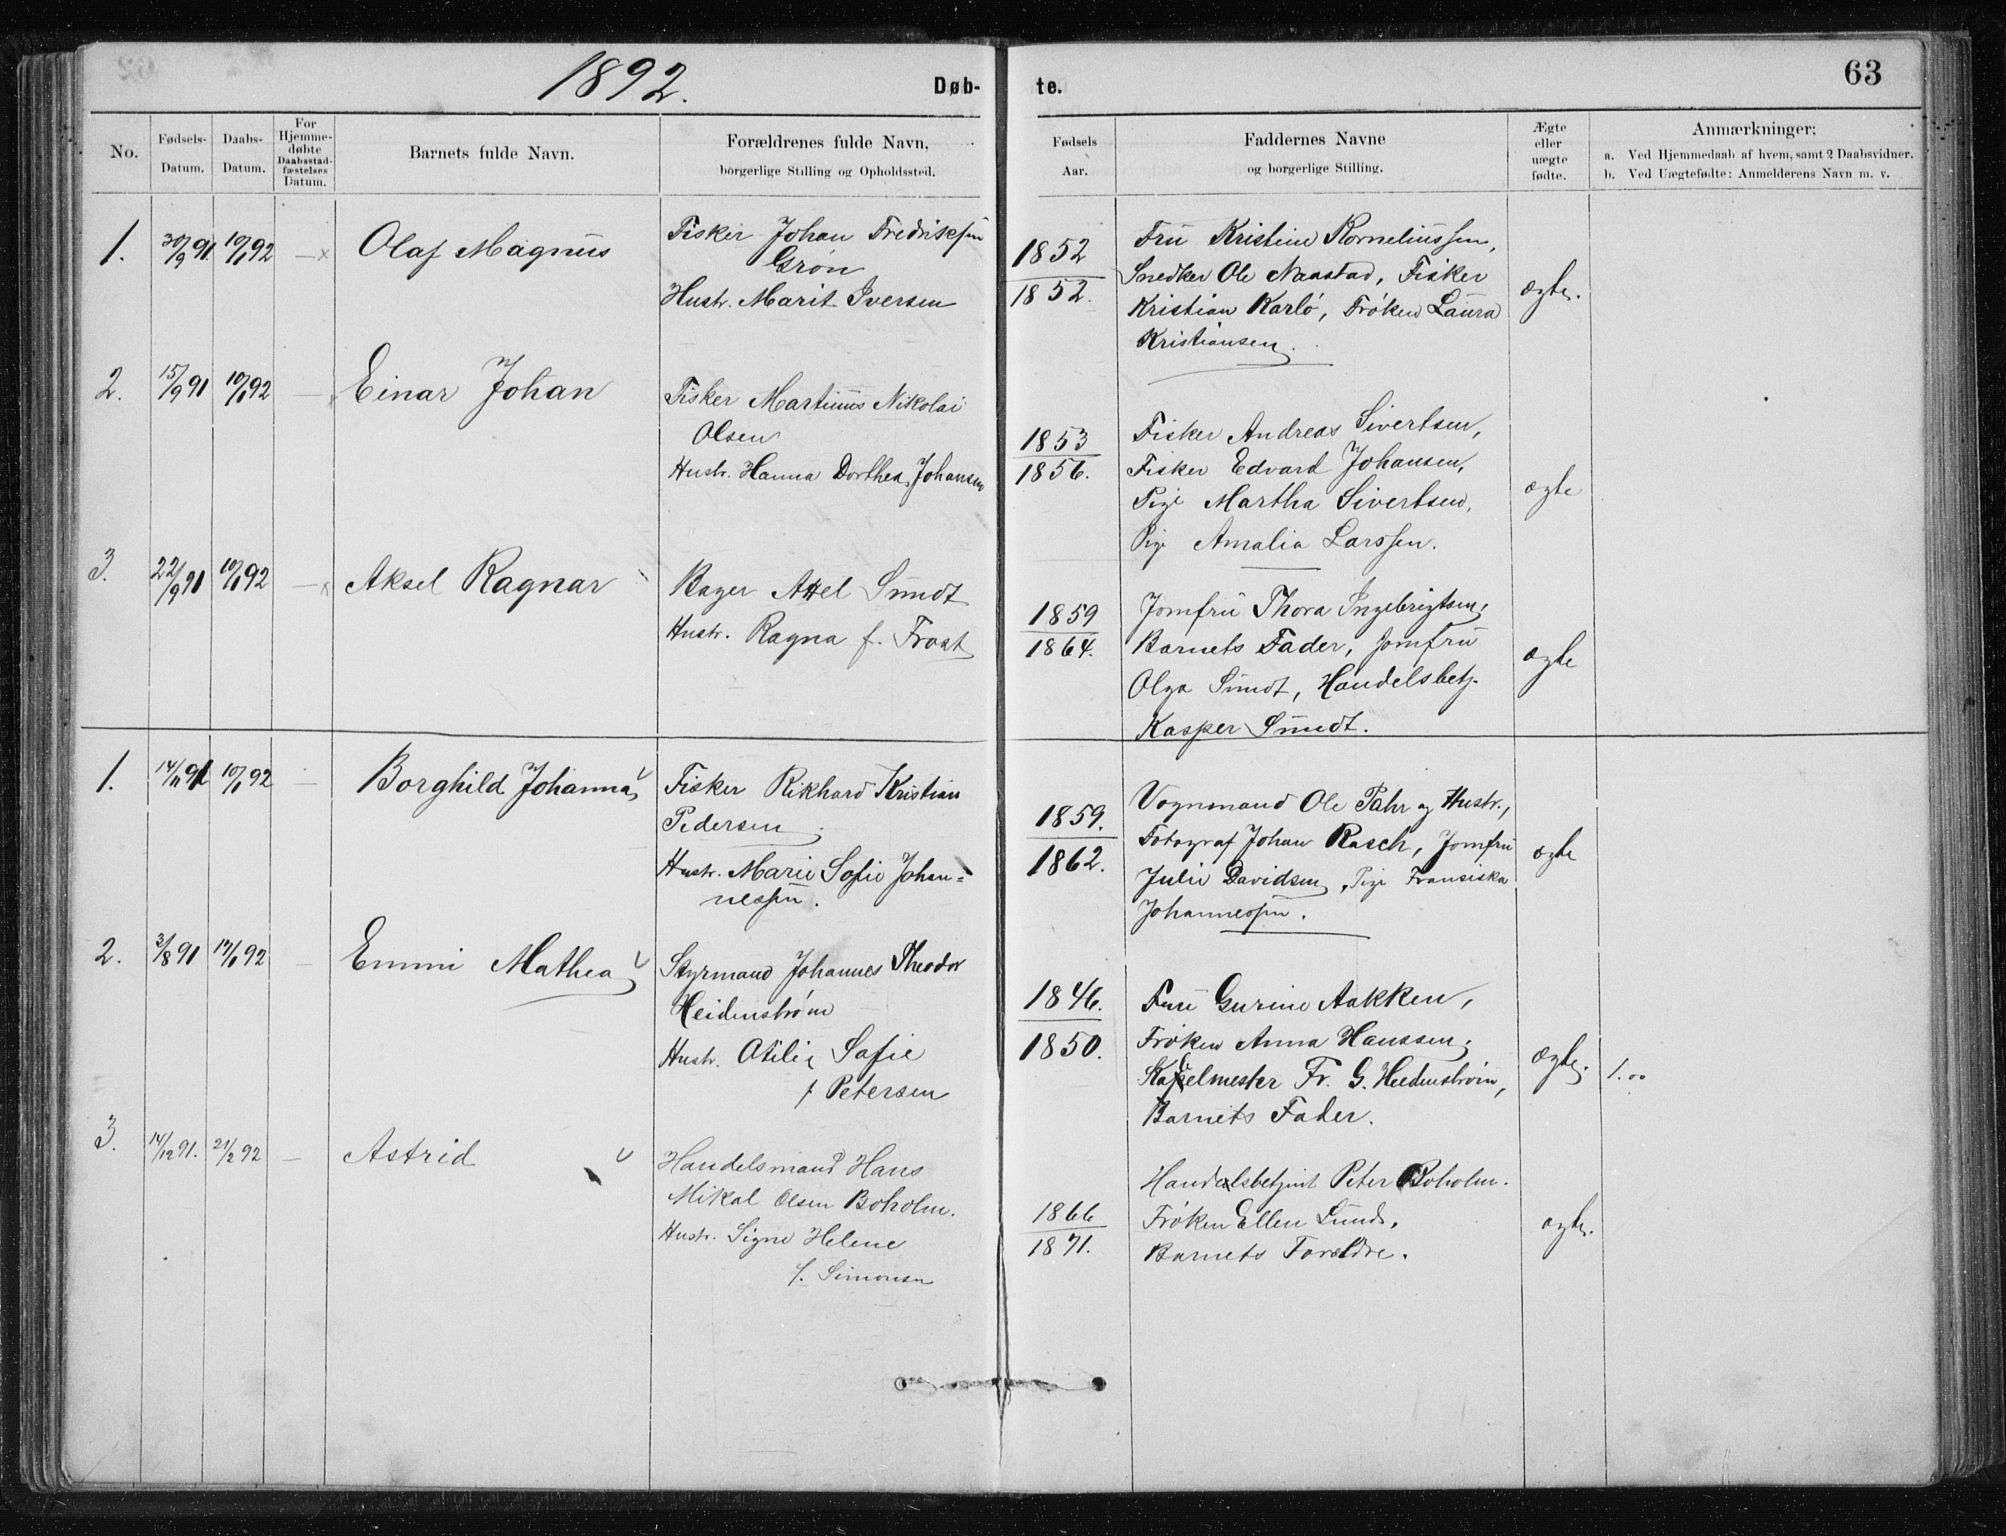 1892.
Døb-
te.
63
No.
Fødsels-
Datum.
Daabs-
Datum.
For
Hjemme-
døbte
Daabsstad-
fæstelses
Datum.
Barnets fulde Navn.
Forældrenes fulde Navn,
borgerlige Stilling og Opholdssted.
Fødsels
Aar.
Faddernes Navne
og borgerlige Stilling.
Ægte
eller
uægte
fødte.
Anmærkninger:
a. Ved Hjemmedaab af hvem, samt 2 Daabsvidner.
b. Ved Uægtefødte: Anmelderens Navn m. v.
1. 30/9 91. 10/1 92 — Olaf Magnus
Fisker Johan Fredriksen
Grøn
Hustr. Marit Iversen
1852
1852.
Fru Kristine Korneliussen,
Snedker Ole Naastad, Fisker
Kristian Karlö, Frøken Laura
Kristiansen.
ægte.
2. 15/9 91 10/1 92 — Einar Johan
Fisker Martinus Nikolai
Olsen
Hustr. Hanna Dorthea Johansen
1853
1856.
Fisker Andreas Sivertsen,
Fisker Edvard Johansen,
Pige Martha Sivertsen,
Pige Amalia Larssen.
ægte
3. 22/9 91 10/1 92 — Aksel Ragnar
Bager Axel Smidt
Hustr. Ragna f. Frost
1859
1864.
Jomfru Thora Ingebrigtsen,
Barnets Fader, Jomfru
Olga Smidt, Handelsbetj.
Kasper Smidt.
ægte
1. 14/11 91 10/1 92 — Borghild Johanna
Fisker Rikhard Kristian
Pedersen
Hustr. Marie Sofie Johan=
nessen.
1859.
1862.
Vognmand Ole Pahr og Hustr.,
Fotograf Johan Rasch, Jomfru
Julie Davidsen, Pige Fransiska
Johannessen.
ægte
2. 3/8 91 17/1 92 — Emmi Mathea
Styrmand Johannes Theodor
Heidenstrøm
Hustr. Otilie Sofie
f Petersen
1846.
1850.
Fru Gurine Aakken,
Frøken Anna Hanssen,
Kapelmester Fr. G. Heidenstrøm,
Barnets Fader.
ægte.
1.00
3. 14/12 91. 21/2 92 — Astrid
Handelsmand Hans
Mikal Olsen Boholm.
Hustr. Signe Helene
f. Simonsen
1866
1871.
Handelsbetjent Peter Boholm.
Frøken Ellen Lund,
Barnets Forældre.
ægte.